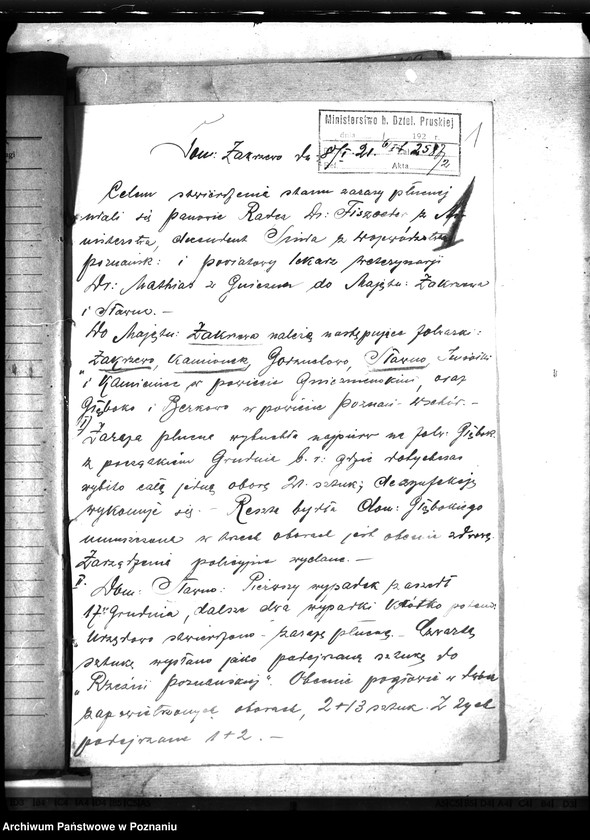 Ministerstwo b. Dziel. Pruskiej
dnia 192 r.
2587/2
Akta
1
Dom: Zakrzewo d. 8/I 21.
Celem stwierdzenia stanu zarazy płucnej
zjechali się panowie Radca Dr: z Mi-
nisterstwa, decernent z województwa
poznańsk: i powiatowy lekarz weterynarji
Dr: Mathias z Gniezna do Majętn: Zakrzewa
i Sławna. —
Do Majętn: Zakrzewa należą następujące folwarki:
"Zakrzewo, Kamionek, Gorzuchowo, Sławno,
i Kamieniec w powiecie Gnieźnieńskim, oraz
Głęboko i Berkowo w powiecie Poznań-Wschód. —
I) Zaraza płucna wybuchła najpierw na folw. Głębok.
z początkiem Grudnia b. r. gdzie dotychczas
wybito całą jedną oborę 21. sztuk; dezynfekcję
wykonuje się. — Reszta bydła Dom: Głębokiego
umieszczona w trzech oborach jest obecnie zdrową.
Zarządzenia policyjne wydane. —
II. Dom: Sławno: Pierwszy wypadek zaszedł
17go Grudnia, dalsze dwa wypadki krótko potem.
Urzędowo stwierdzono zarazę płucną. — Czwartą
sztukę wysłano jako podejrzaną sztukę do
"Rzeźni poznańskiej". Obecnie pogłowie w dwóch
zapowietrzonych oborach, 2+13 sztuk. Z tych
podejrzane 1+2. —
Archiwum Państwowe w Poznaniu